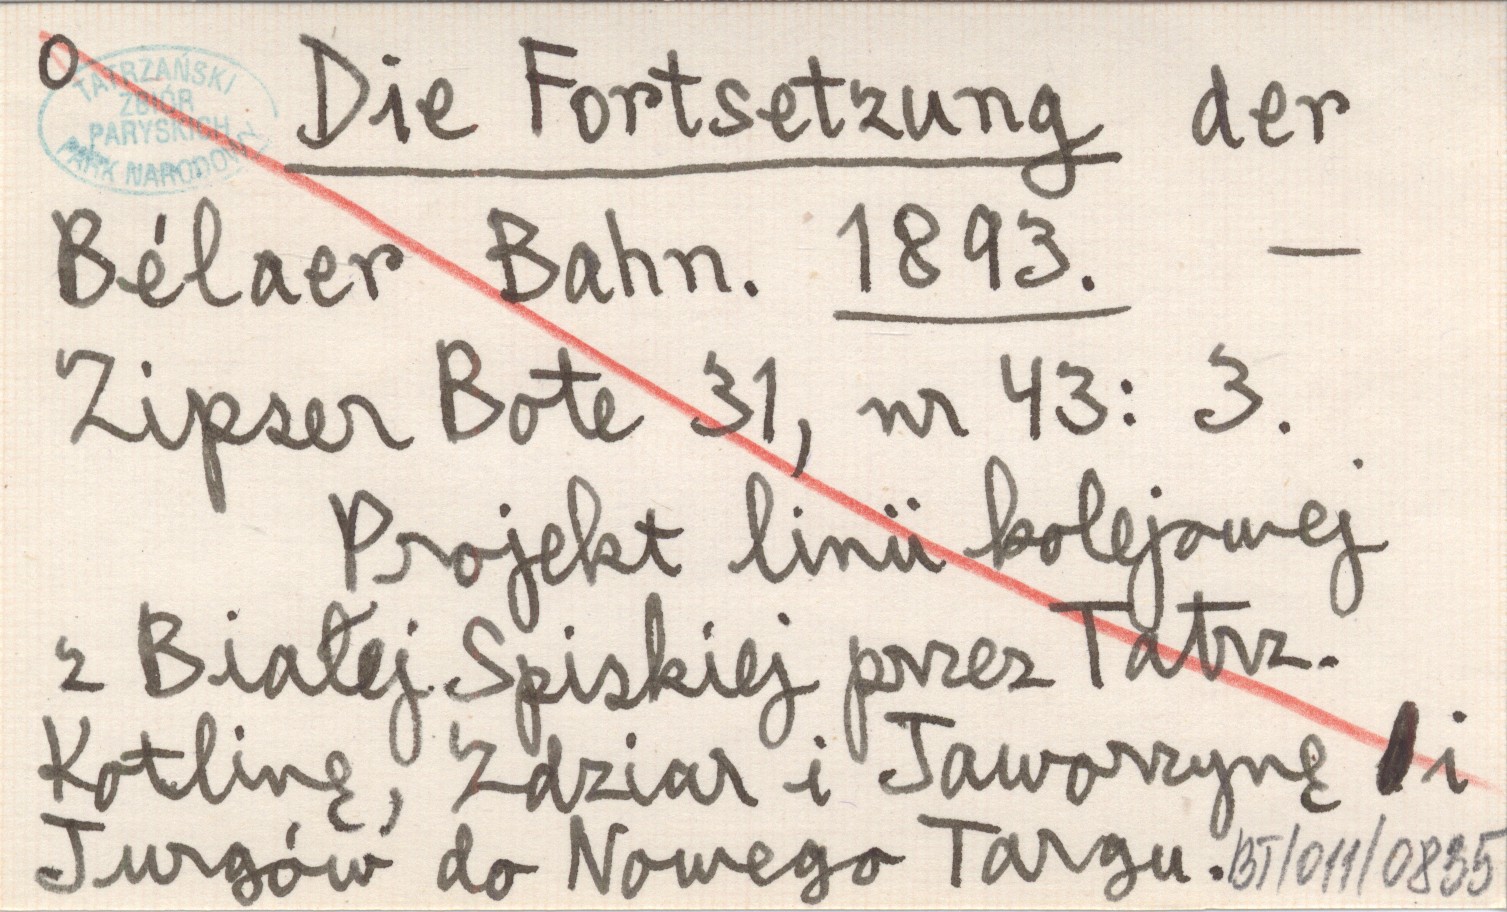 O
TATRZAŃSKI
ZBIÓR
PARYSKICH
PARK NARODOWY
Die Fortsetzung der
Bélaer Bahn. 1893. —
Zipser Bote 31, nr 43: 3.
Projekt linii kolejowej
z Białej Spiskiej przez Tatrz.
Kotlinę, Zdziar i Jaworzynę i
Jurgów do Nowego Targu.
BT/011/0835